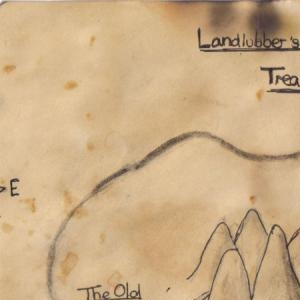 Landlubber's
Trea
E
The Old